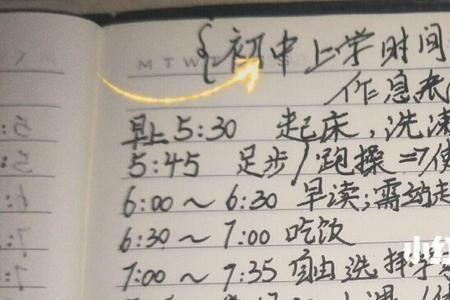 {初中上学时间
M T W T
作息表
早上5:30 起床,洗漱
5:45 足步/跑操=7使
6:00~6:30 早读;需站起
6:30~7:00 吃饭
7:00~7:35 自由选择学
小红